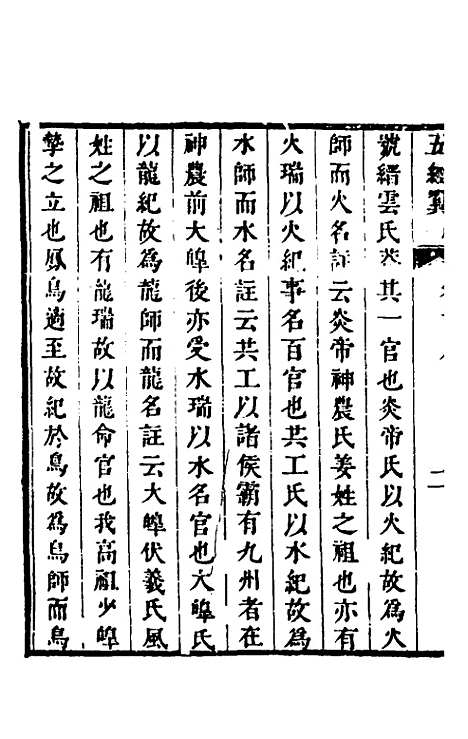 五經算
號縉雲氏蓋其一官也炎帝氏以火紀故為火
師而火名註云炎帝神農氏姜姓之祖也亦有
火瑞以火紀事名百官也共工氏以水紀故為
水師而水名註云共工以諸侯霸有九州者在
神農前大皥後亦受水瑞以水名官也大皥氏
以龍紀故為龍師而龍名註云大皥伏羲氏風
姓之祖也有龍瑞故以龍命官也我高祖少皥
摯之立也鳳鳥適至故紀於鳥故為鳥師而鳥